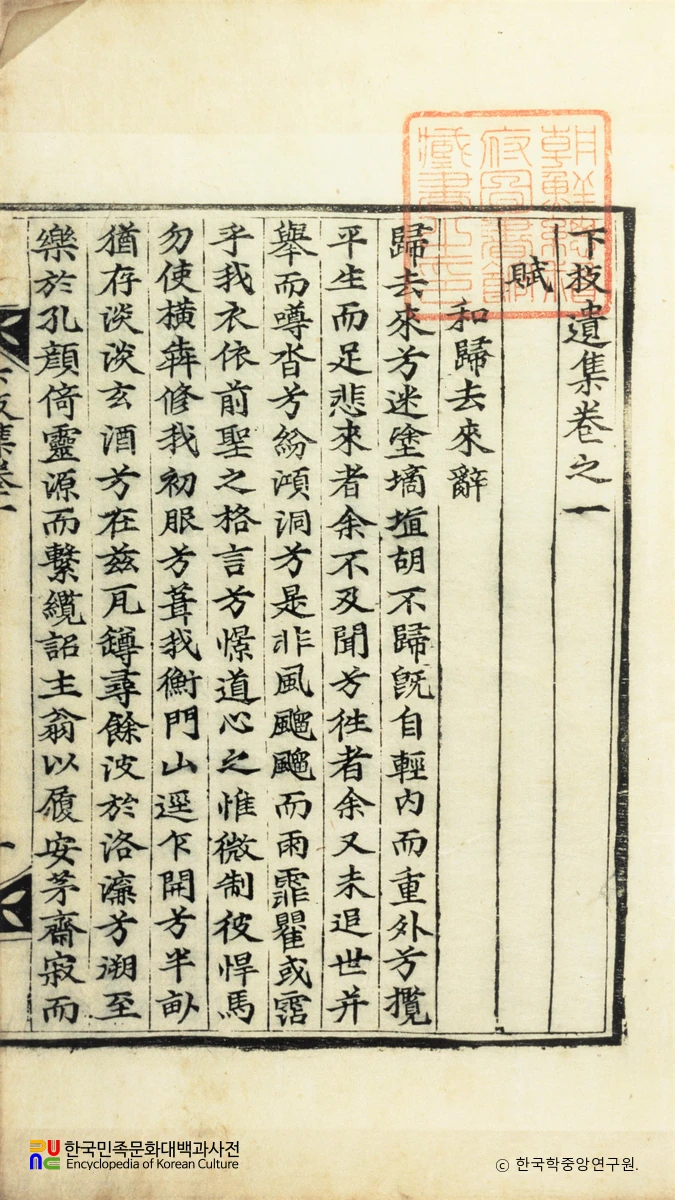 下枝遺集卷之一
賦
和歸去來辭
歸去來兮迷塗墑埴胡不歸旣自輕內而重外兮攬
平生而足悲來者余不及聞兮徃者余又未追世并
擧而噂沓兮紛澒洞兮是非風颸颸而雨霏瞿或霑
乎我衣依前聖之格言兮憬道心之惟微制彼悍馬
勿使橫犇修我初服兮葺我衡門山逕乍開兮半畝
猶存淡淡玄酒兮在玆瓦罇尋餘波於洛濂兮溯至
樂於孔顔倚靈源而繫纜詔主翁以履安茅齋寂而
下枝集卷一
一
朝鮮總督
府圖書館
藏書之印
한국민족문화대백과사전
Encyclopedia of Korean Culture
© 한국학중앙연구원.